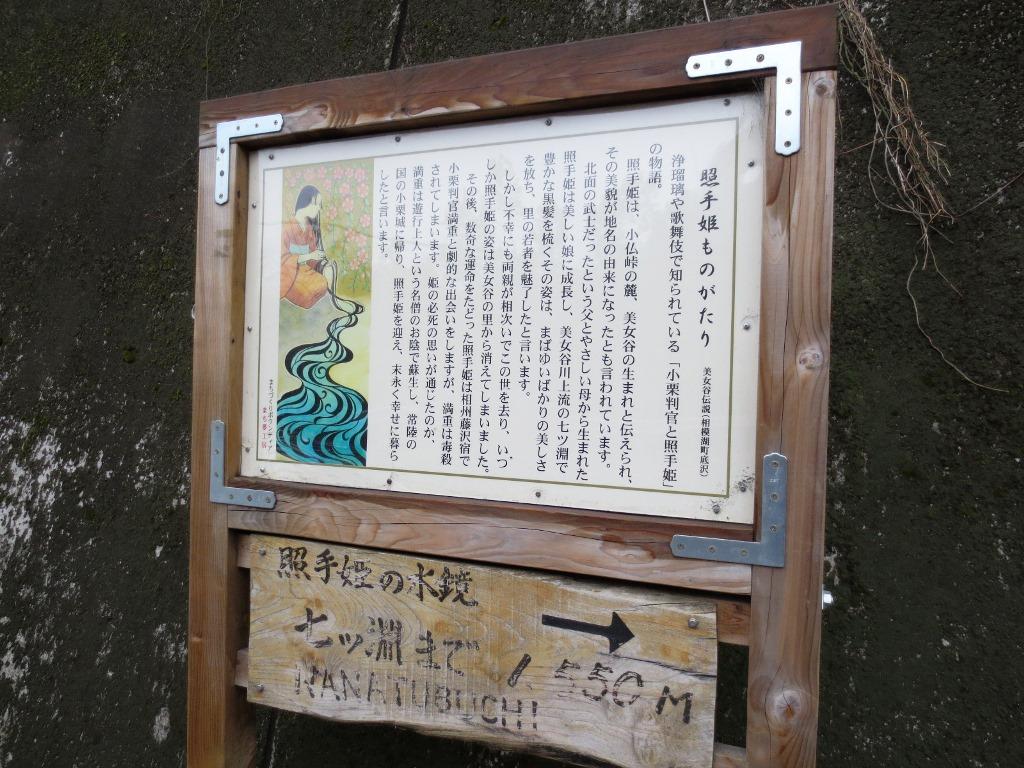 照手姫ものがたり
美女谷伝説(相模湖町底沢)
浄瑠璃や歌舞伎で知られている「小栗判官と照手姫」
の物語。
照手姫は、小仏峠の麓、美女谷の生まれと伝えられ、
その美貌が地名の由来になったとも言われています。
北面の武士だったという父とやさしい母から生まれた
照手姫は美しい娘に成長し、美女谷川上流の七ツ淵で
豊かな黒髪を梳くその姿は、まばゆいばかりの美しさ
を放ち、里の若者を魅了したと言います。
しかし不幸にも両親が相次いでこの世を去り、いつ
しか照手姫の姿は美女谷の里から消えてしまいました。
その後、数奇な運命をたどった照手姫は相州藤沢宿で
小栗判官満重と劇的な出会いをしますが、満重は毒殺
されてしまいます。姫の必死の思いが通じたのか、
満重は遊行上人という名僧のお陰で蘇生し、常陸の
国の小栗城に帰り、照手姫を迎え、末永く幸せに暮ら
したと言います。
まちづくりボランティア
まち夢工房
照手姫の水鏡
七ッ淵まで
NANATUBUCHI
1.550M